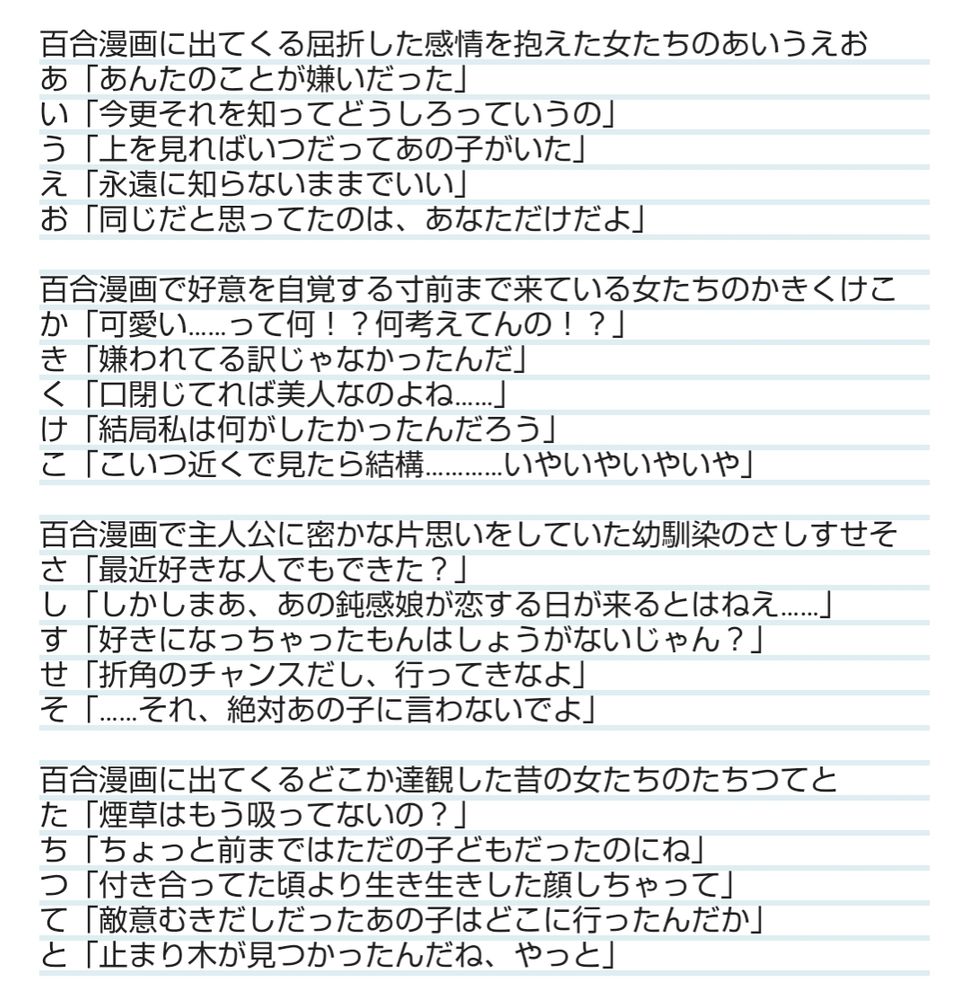 百合漫画に出てくる屈折した感情を抱えた女たちのあいうえお
あ「あんたのことが嫌いだった」
い「今更それを知ってどうしろっていうの」
う「上を見ればいつだってあの子がいた」
え「永遠に知らないままでいい」
お「同じだと思ってたのは、あなただけだよ」

百合漫画で好意を自覚する寸前まで来ている女たちのかきくけこ
か「可愛い……って何！？何考えてんの！？」
き「嫌われてる訳じゃなかったんだ」
く「口閉じてれば美人なのよね……」
け「結局私は何がしたかったんだろう」
こ「こいつ近くで見たら結構…………いやいやいやいや」

百合漫画で主人公に密かな片思いをしていた幼馴染のさしすせそ
さ「最近好きな人でもできた？」
し「しかしまあ、あの鈍感娘が恋する日が来るとはねえ……」
す「好きになっちゃったもんはしょうがないじゃん？」
せ「折角のチャンスだし、行ってきなよ」
そ「……それ、絶対あの子に言わないでよ」

百合漫画に出てくるどこか達観した昔の女たちのたちつてと
た「煙草はもう吸ってないの？」
ち「ちょっと前まではただの子どもだったのにね」
つ「付き合ってた頃より生き生きした顔しちゃって」
て「敵意むきだしだったあの子はどこに行ったんだか」
と「止まり木が見つかったんだね、やっと」